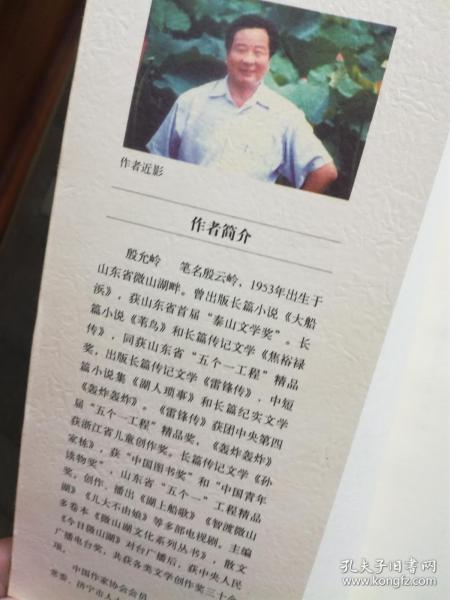 作者近影
作者简介
殷允岭 笔名殷云岭，1953年出生于
山东省微山湖畔。曾出版长篇小说《大船
浜》，获山东省首届“泰山文学奖”。长
篇小说《苇鸟》和长篇传记文学《焦裕禄
传》，同获山东省“五个一工程”精品
奖，出版长篇传记文学《雷锋传》、中短
篇小说集《湖人琐事》和长篇纪实文学
《轰炸轰炸》。《雷锋传》获团中央第四
届“五个一工程”精品奖，《轰炸轰炸》
获浙江省儿童创作奖。长篇传记文学《孙
家栋》，获“中国图书奖”和“中国青年
读物奖”、山东省“五个一”工程精品
奖。创作、播出《湖上船歌》《智渡微山
湖》《儿大不由娘》等多部电视剧。主编
多卷本《微山湖文化系列丛书》，散文
《今日微山湖》对台广播后，获中央人民
广播电台奖，共获各类文学创作奖三十余
项。
中国作家协会会员
常委，济宁市人大
孔夫子旧书网